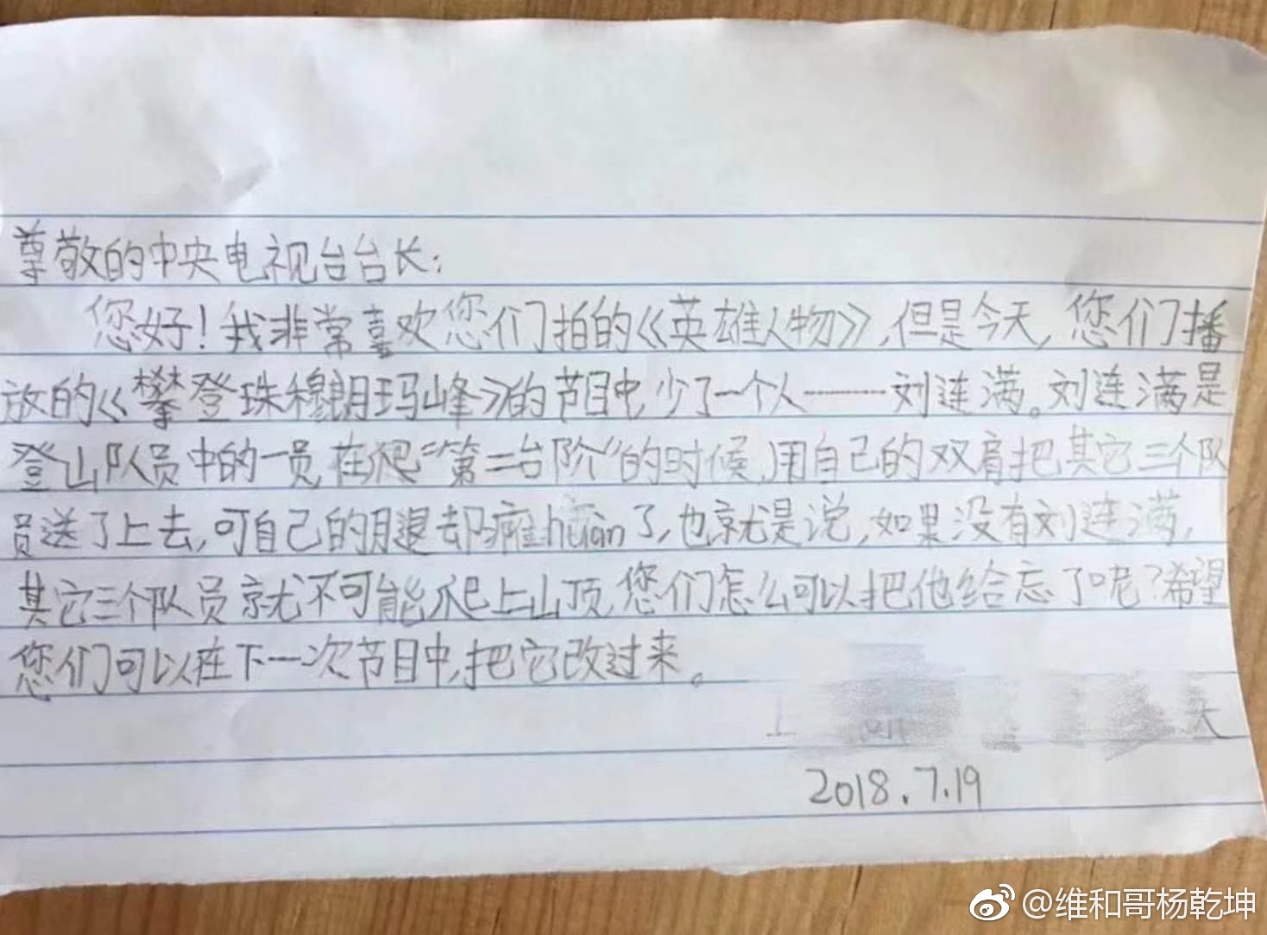 尊敬的中央电视台台长:
您好!我非常喜欢您们拍的《英雄人物》,但是今天,您们播
放的《攀登珠穆朗玛峰》的节目中,少了一个人………刘连满。刘连满是
登山队员中的一员,在爬“第二台阶”的时候,用自己的双肩把其它三个队
员送了上去,可自己的腿却瘫huàn了,也就是说,如果没有刘连满,
其它三个队员就不可能爬上山顶,您们怎么可以把他给忘了呢?希望
您们可以在下一次节目中,把它改过来。
2018.7.19
@维和哥杨乾坤